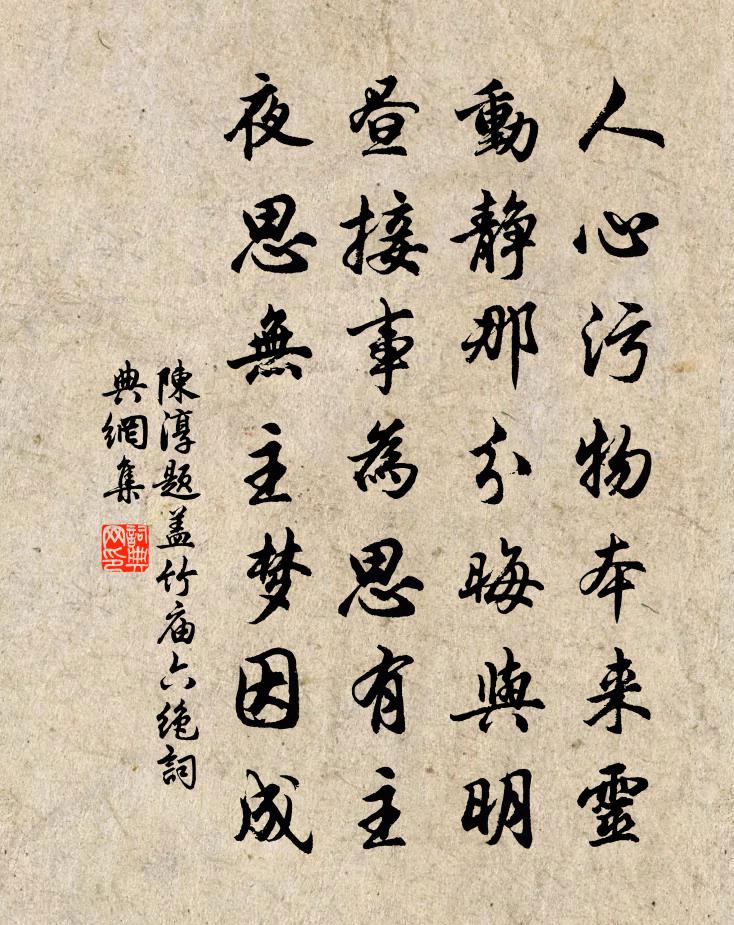 人心污物本来靈
動静那分晦與明
昼接事為思有主
夜思無主梦因成
陳淳题盖竹庙六绝詞
典網集
詞典
网印